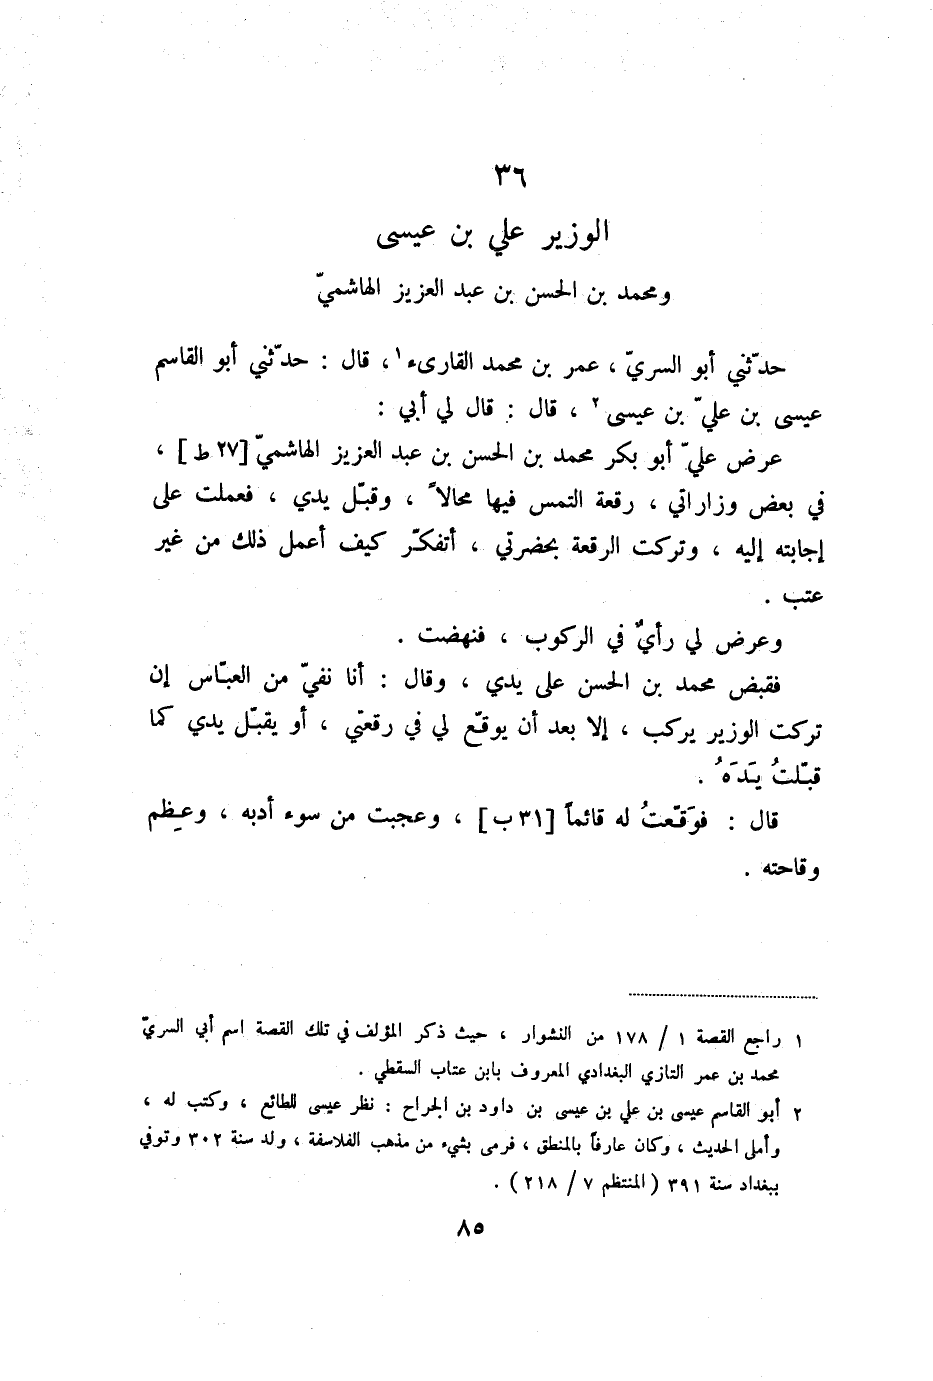 ٣٦
الوزير علي بن عيسى
ومحمد بن الحسن بن عبد العزيز الهاشميّ
حدّثني أبو السريّ ، عمر بن محمد القارىء١ ، قال : حدّثني أبو القاسم
عيسى بن عليّ بن عيسى٢ ، قال : قال لي أبي :
عرض عليّ أبو بكر محمد بن الحسن بن عبد العزيز الهاشميّ [٢٧ ط] ،
في بعض وزاراتي ، رقعة التمس فيها محالاً ، وقبّل يدي ، فعملت على
إجابته إليه ، وتركت الرقعة بحضرتي ، أتفكّر كيف أعمل ذلك من غير
عتب .
وعرض لي رأيٌ في الركوب ، فنهضت .
فقبض محمد بن الحسن على يدي ، وقال : أنا نفيّ من العبّاس إن
تركت الوزير يركب ، إلا بعد أن يوقّع لي في رقعتي ، أو يقبّل يدي كما
قبّلتُ يَدَهُ .
قال : فوَقّعتُ له قائماً [٣١ ب] ، وعجبت من سوء أدبه ، وعِظم
وقاحته .
١ راجع القصة ١ / ١٧٨ من النشوار ، حيث ذكر المؤلف في تلك القصة اسم أبي السريّ
محمد بن عمر التازي البغدادي المعروف بابن عتاب السقطي .
٢ أبو القاسم عيسى بن علي بن عيسى بن داود بن الجراح : نظر عيسى للطائع ، وكتب له ،
وأملى الحديث ، وكان عارفاً بالمنطق ، فرمى بشيء من مذهب الفلاسفة ، ولد سنة ٣٠٢ وتوفي
ببغداد سنة ٣٩١ ( المنتظم ٧ / ٢١٨ ) .
٨٥